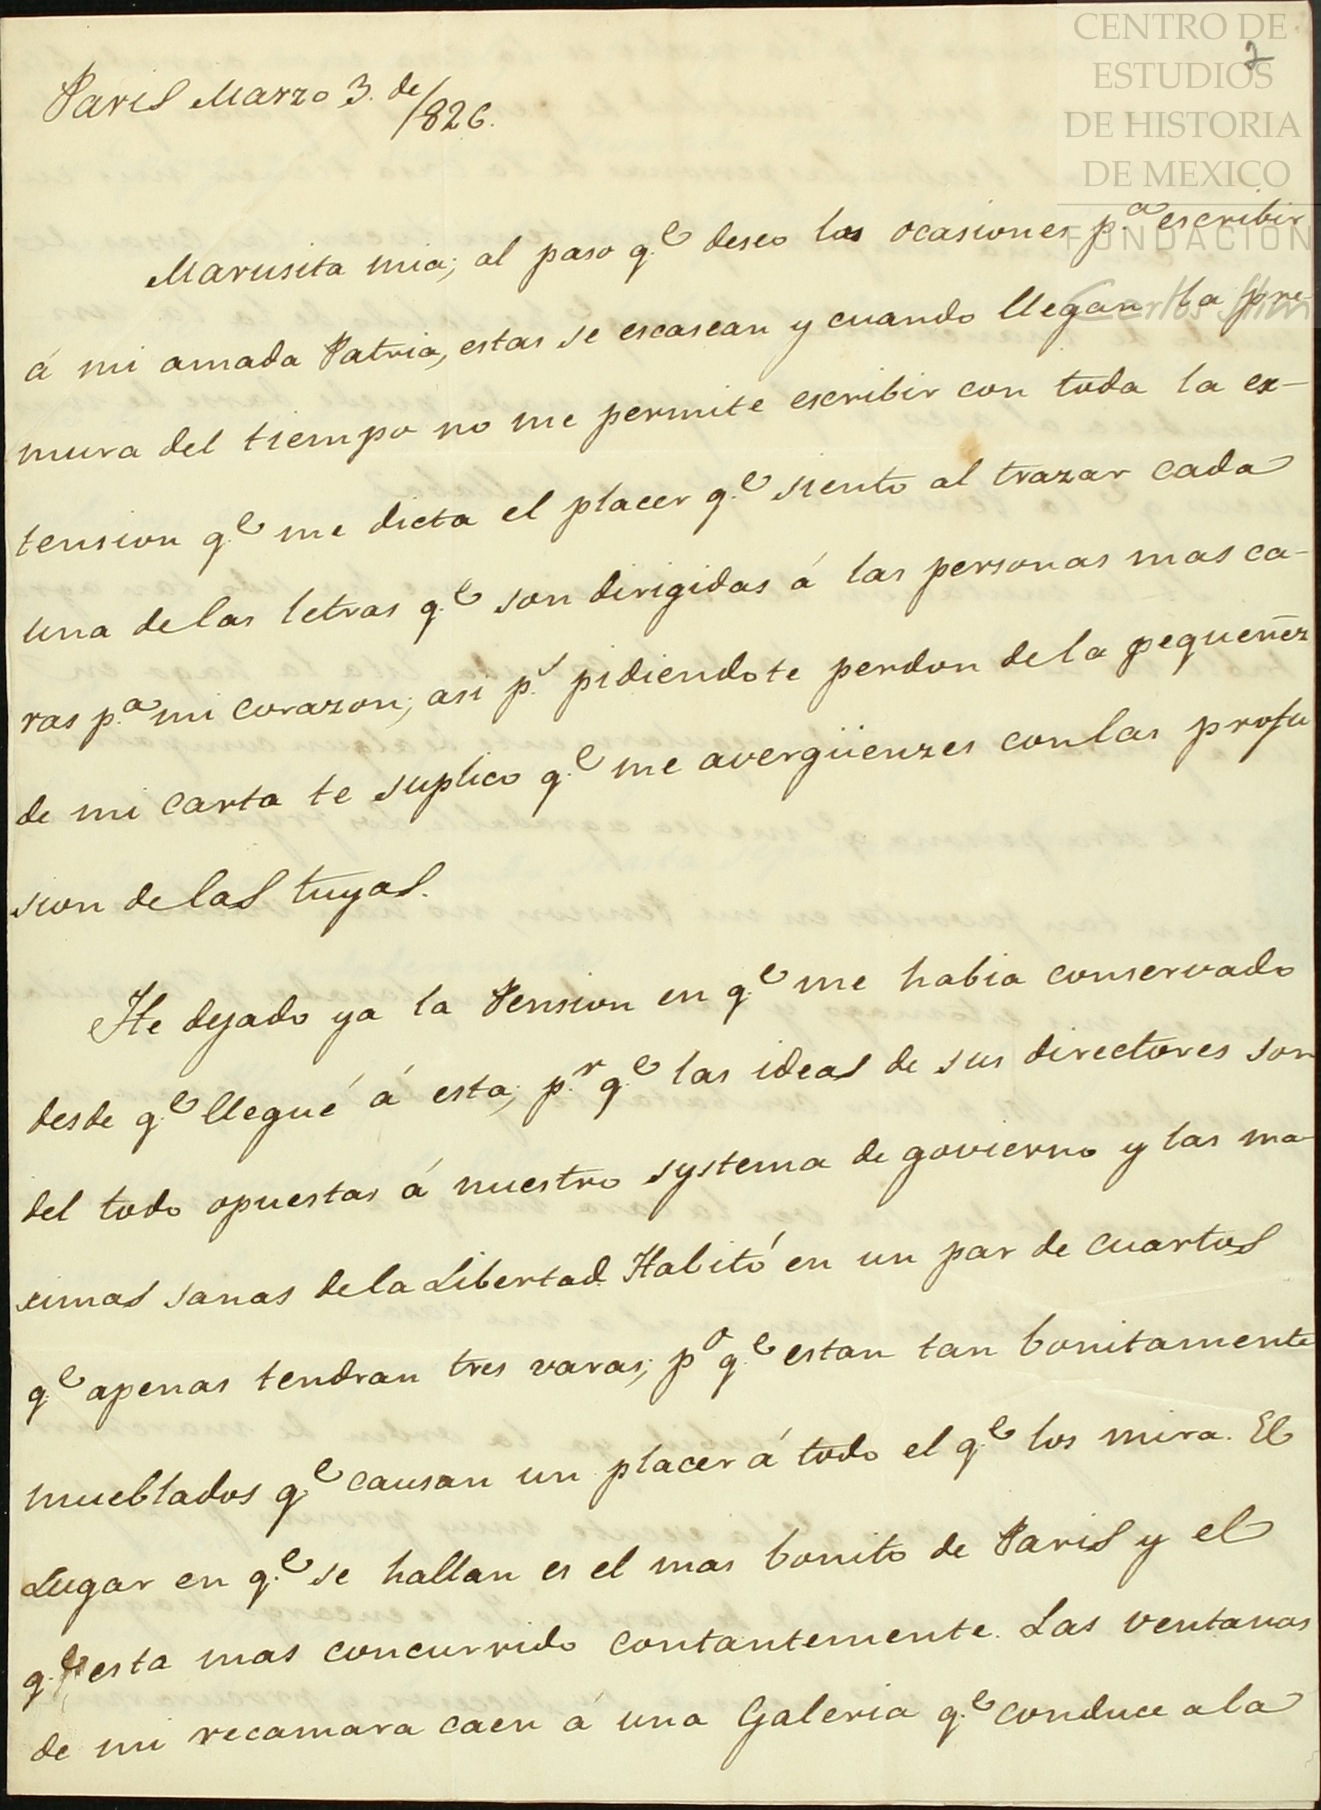 CENTRO DE
ESTUDIOS
DE HISTORIA
DE MEXICO
FUNDACIÓN
Carlos Slim
2
Paris Marzo 3. de/826.
Marusita mia; al paso q.e deseo las ocasiones p.a escribir
á mi amada Patria, estas se escasean y cuando llegan la pre-
mura del tiempo no me permite escribir con toda la ex-
tension q.e me dicta el placer q.e siento al trazar cada
una de las letras q.e son dirigidas á las personas mas ca-
ras p.a mi corazon; asi p.s pidiendote perdon de la pequeñez
de mi carta te suplico q.e me avergüenzes con las profu
sion de las tuyas.
He dejado ya la Pension en q.e me habia conservado
desde q.e llegué á esta; p.r q.e las ideas de sus directores son
del todo opuestas á nuestro systema de govierno y las ma
ximas sanas de la Libertad. Habitó en un par de cuartos
q.e apenas tendran tres varas; p.o q.e estan tan bonitamente
mueblados q.e causan un placer á todo el q.e los mira. El
Lugar en q.e se hallan es el mas bonito de Paris y el
q.e esta mas concurrido contantemente. Las ventanas
de mi recamara caen á una Galeria q.e conduce a la